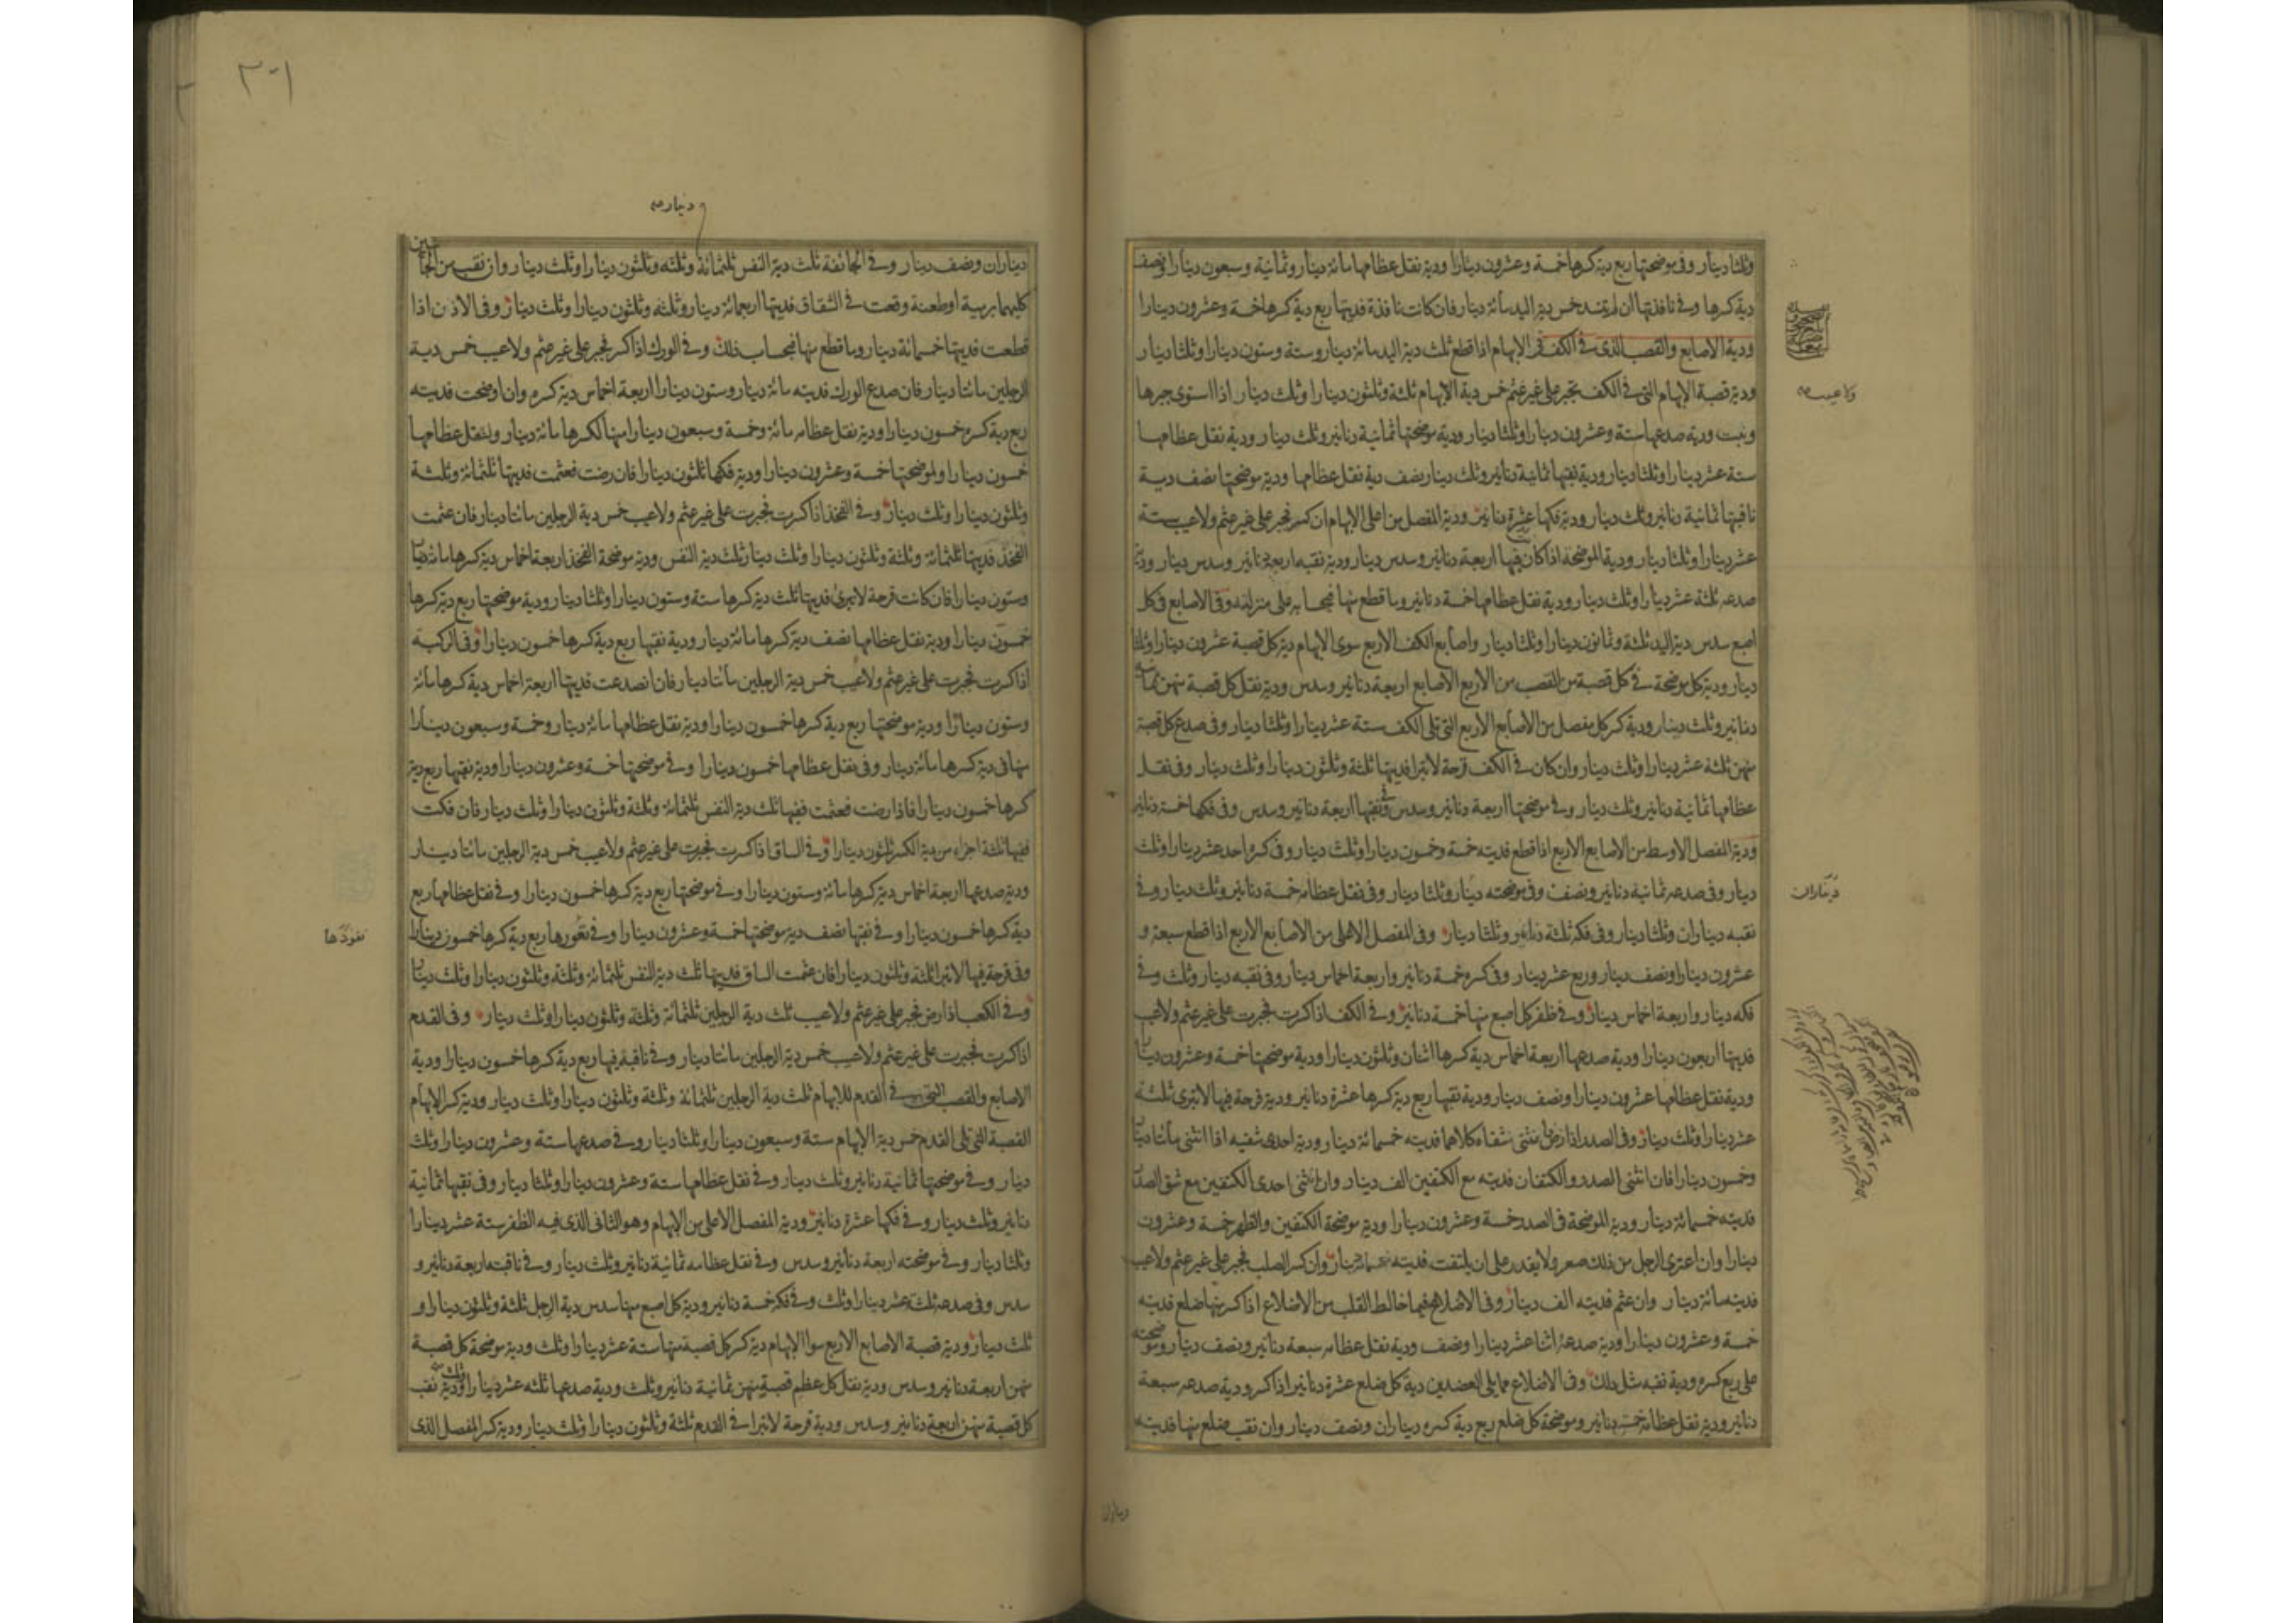 وثلثا دينار وفى موضحتها ربع دية كسرها خمسة وعشرون دينارا ودية نقل عظامها مائة دينار وثمانية وسبعون دينارا ونصف
دية كسرها وفي نافذتها ان لم تنسد خمس دية اليد مائة دينار فان كانت نافذة فديتها ربع دية كسرها خمسة وعشرون دينارا
ودية الاصابع والقصب الذى في الكف فى الابهام اذا قطع ثلث دية اليد مائة دينار وستة وستون دينارا وثلثا دينار
ودية قصبة الابهام التى في الكف تجبر على غير عثم خمس دية الابهام ثلثة وثلثون دينارا وثلث دينار اذا استوى جبرها
ولا عيب صح
وثبت ودية صدعها ستة وعشرون دينارا وثلثا دينار ودية موضحتها ثمانية دنانير وثلث دينار ودية نقل عظامها
ستة عشر دينارا وثلثا دينار ودية نقبها ثمانية دنانير وثلث دينار نصف دية نقل عظامها ودية موضحتها نصف دية
ناقبتها ثمانية دنانير وثلث دينار ودية فكها عشرة دنانير ودية المفصل من اعلى الابهام ان كسر فجبر على غير عثم ولا عيب ستة
عشر دينارا وثلثا دينار ودية الموضحة اذا كان فيها اربعة دنانير وسدس دينار ودية نقبه اربعة دنانير وسدس دينار ودية
صدعه ثلثة عشر دينارا وثلث دينار ودية نقل عظامها خمسة دنانير وما قطع منها فبحسابه على منزلته وفى الاصابع فى كل
اصبع سدس دية اليد ثلثة وثمانون دينارا وثلثا دينار واصابع الكف الاربع سوى الابهام دية كل قصبة عشرون دينارا وثلثا
دينار ودية كل موضحة في كل قصبة من القصب من الاربع الاصابع اربعة دنانير وسدس ودية نقل كل قصبة منهن ثمانية
دنانير وثلث دينار ودية كسر كل مفصل من الاصابع الاربع التى تلى الكف ستة عشر دينارا وثلثا دينار وفى صدع كل قصبة
منهن ثلثة عشر دينارا وثلث دينار وان كان في الكف قرحة لا تبرا فديتها ثلثة وثلثون دينارا وثلث دينار وفى نقل
عظامها ثمانية دنانير وثلث دينار وفي موضحتها اربعة دنانير وسدس وفى نقبها اربعة دنانير وسدس وفى فكها خمسة دنانير
ودية المفصل الاوسط من الاصابع الاربع اذا قطع فديته خمسة وخمسون دينارا وثلث دينار وفى كسره احد عشر دينارا وثلث
دينار وفى صدعه ثمانية دنانير ونصف وفى موضحته دينار وثلثا دينار وفى نقل عظامه خمسة دنانير وثلث دينار وفي
ديناران
نقبه ديناران وثلثا دينار وفى فكه ثلثة دنانير وثلثا دينار وفى المفصل الاعلى من الاصابع الاربع اذا قطع سبعة و
عشرون دينارا ونصف دينار وربع عشر دينار وفى كسره خمسة دنانير واربعة اخماس دينار وفى نقبه دينار وثلث وفي
فكه دينار واربعة اخماس دينار وفي ظفر كل اصبع منها خمسة دنانير وفي الكف اذا كسرت فجبرت على غير عثم ولا عيب
فديتها اربعون دينارا ودية صدعها اربعة اخماس دية كسرها اثنان وثلثون دينارا ودية موضحتها خمسة وعشرون دينارا
ودية نقل عظامها عشرون دينارا ونصف دينار ودية نقبها ربع دية كسرها عشرة دنانير ودية قرحة فيها لا تبرى ثلثة
عشر دينارا وثلث دينار وفى الصدر اذا رض فانثنى شقاه كلاهما فديته خمسمائة دينار ودية احدى شقيه اذا انثنى مائتا دينار
وخمسون دينارا فان انثنى الصدر والكتفان فديته مع الكتفين الف دينار وان انثنى احدى الكتفين مع شق الصدر
فديته خمسمائة دينار ودية الموضحة فى الصدر خمسة وعشرون دينارا ودية موضحة الكتفين والظهر خمسة وعشرون
دينارا وان اعترى الرجل من ذلك صعر ولا يقدر على ان يلتفت فديته خمسمائة دينار وان كسر الصلب فجبر على غير عثم ولا عيب
فديته مائة دينار وان عثم فديته الف دينار وفى الاضلاع فيما خالط القلب من الاضلاع اذا كسر منها ضلع فديته
خمسة وعشرون دينارا ودية صدعه اثنا عشر دينارا ونصف ودية نقل عظامه سبعة دنانير ونصف دينار وموضحته
على ربع كسره ودية نقبه مثل ذلك وفى الاضلاع مما يلى العضدين دية كل ضلع عشرة دنانير اذا كسر ودية صدعه سبعة
دنانير ودية نقل عظامه خمسة دنانير وموضحة كل ضلع ربع دية كسره ديناران ونصف دينار وان نقب ضلع منها فديته
ديناران
٣٠١
ودينار صح
ديناران ونصف دينار وفي الجائفة ثلث دية النفس ثلثمائة وثلثه وثلثون دينارا وثلث دينار وان نقب من الجانبين
كليهما برمية او طعنة وقعت في الشقاق فديتها اربعمائة دينار وثلثه وثلثون دينارا وثلث دينار وفى الاذن اذا
قطعت فديتها خمسمائة دينار وما قطع منها فبحساب ذلك وفي الورك اذا كسر فجبر على غير عثم ولا عيب خمس دية
الرجلين مائتا دينار فان صدع الورك فديته مائة دينار وستون دينارا اربعة اخماس دية كسره وان اوضحت فديته
ربع دية كسره خمسون دينارا ودية نقل عظامه مائة وخمسة وسبعون دينارا منها لكسرها مائة دينار ولنقل عظامها
خمسون دينارا ولموضحتها خمسة وعشرون دينارا ودية فكها ثلثون دينارا فان رضت فعثمت فديتها ثلثمائة وثلثة
وثلثون دينارا وثلث دينار وفي الفخذ اذا كسرت فجبرت على غير عثم ولا عيب خمس دية الرجلين مائتا دينار فان عثمت
الفخذ فديتها ثلثمائة وثلثة وثلثون دينارا وثلث دينار ثلث دية النفس ودية موضحة الفخذ اربعة اخماس دية كسرها مائة دينار
وستون دينارا فان كانت قرحة لا تبرئ فديتها ثلث دية كسرها ستة وستون دينارا وثلثا دينار ودية موضحتها ربع دية كسرها
خمسون دينارا ودية نقل عظامها نصف دية كسرها مائة دينار ودية نقبها ربع دية كسرها خمسون دينارا وفى الركبة
اذا كسرت فجبرت على غير عثم ولا عيب خمس دية الرجلين مائتا دينار فان انصدعت فديتها اربعة اخماس دية كسرها مائة
وستون دينارا ودية موضحتها ربع دية كسرها خمسون دينارا ودية نقل عظامها مائة دينار وخمسة وسبعون دينارا
منها فى دية كسرها مائة دينار وفى نقل عظامها خمسون دينارا وفي موضحتها خمسة وعشرون دينارا ودية نقبها ربع دية
كسرها خمسون دينارا فاذا رضت فعثمت ففيها ثلث دية النفس ثلثمائة وثلثة وثلثون دينارا وثلث دينار فان فكت
ففيها ثلثة اجزاء من دية الكسر ثلثون دينارا وفي الساق اذا كسرت فجبرت على غير عثم ولا عيب خمس دية الرجلين مائتا دينار
ودية صدعها اربعة اخماس دية كسرها مائة وستون دينارا وفي موضحتها ربع دية كسرها خمسون دينارا وفي نقل عظامها ربع
دية كسرها خمسون دينارا وفي نقبها نصف دية موضحتها خمسة وعشرون دينارا وفي نغورها ربع دية كسرها خمسون دينارا
نفوذها
وفى قرحة فيها لا تبرا ثلثة وثلثون دينارا فان عثمت الساق فديتها ثلث دية النفس ثلثمائة وثلثة وثلثون دينارا وثلث دينار
وفي الكعب اذا رض فجبر على غير عثم ولا عيب ثلث دية الرجلين ثلثمائة وثلثة وثلثون دينارا وثلث دينار وفى القدم
اذا كسرت فجبرت على غير عثم ولا عيب خمس دية الرجلين مائتا دينار وفي ناقبة فيها ربع دية كسرها خمسون دينارا ودية
الاصابع والقصب التى في القدم للابهام ثلث دية الرجلين ثلثمائة وثلثة وثلثون دينارا وثلث دينار ودية كسر الابهام
القصبة التى تلى القدم خمس دية الابهام ستة وسبعون دينارا وثلثا دينار وفي صدعها ستة وعشرون دينارا وثلث
دينار وفي موضحتها ثمانية دنانير وثلث دينار وفي نقل عظامها ستة وعشرون دينارا وثلثا دينار وفى نقبها ثمانية
دنانير وثلث دينار وفي فكها عشرة دنانير ودية المفصل الاعلى من الابهام وهو الثانى الذى فيه الظفر ستة عشر دينارا
وثلثا دينار وفي موضحته اربعة دنانير وسدس وفي نقل عظامه ثمانية دنانير وثلث دينار وفي ناقبته اربعة دنانير و
سدس وفى صدعه ثلثة عشر دينارا وثلث وفي فكه خمسة دنانير ودية كل اصبع منها سدس دية الرجل ثلثة وثلثون دينارا و
ثلث دينار ودية قصبة الاصابع الاربع سوا الابهام دية كسر كل قصبة منها ستة عشر دينارا وثلث ودية موضحة كل قصبة
منهن اربعة دنانير وسدس ودية نقل كل عظم قصبة منهن ثمانية دنانير وثلث ودية صدعها ثلثه عشر دينارا وثلث ودية نقب
كل قصبة منهن اربعة دنانير وسدس ودية قرحة لا تبرا في القدم ثلثة وثلثون دينارا وثلث دينار ودية كسر المفصل الذى